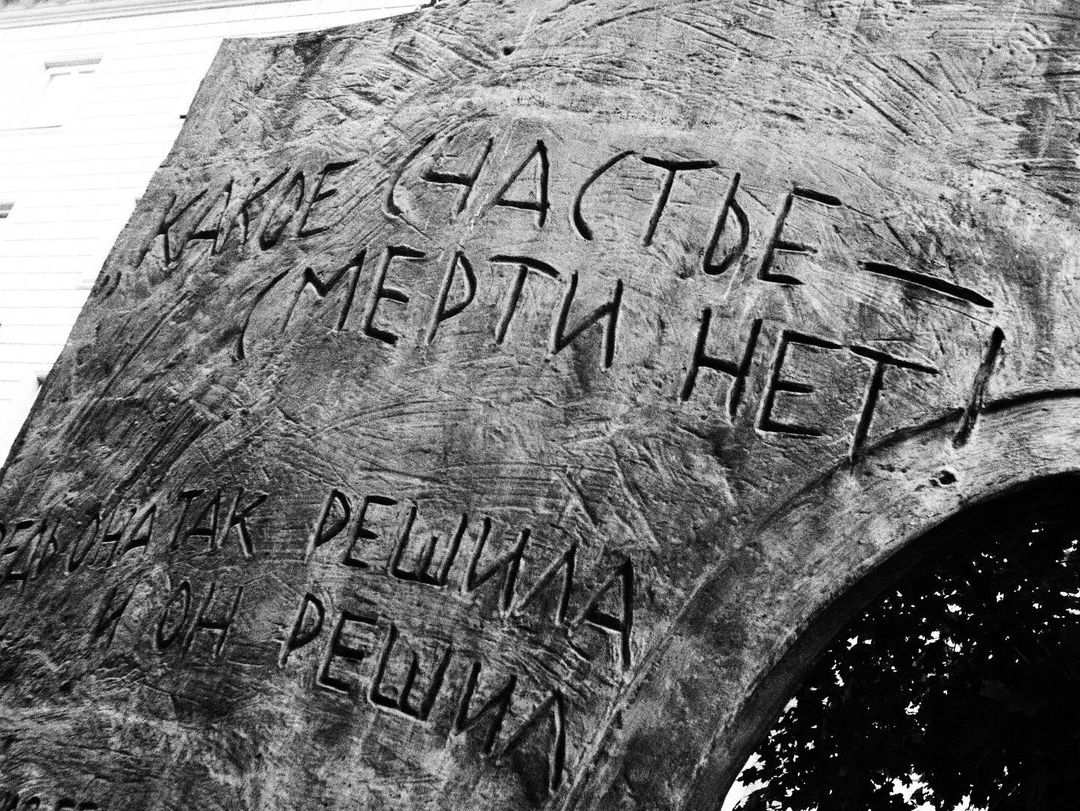 „КАКОЕ СЧАСТЬЕ —
СМЕРТИ НЕТ!
ОНА ТАК РЕШИЛА
И ОН РЕШИЛ